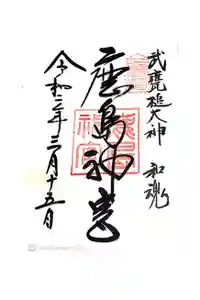 武甕槌大神 和魂
鹿島神宮
令和二年三月十五日
鹿島神宮